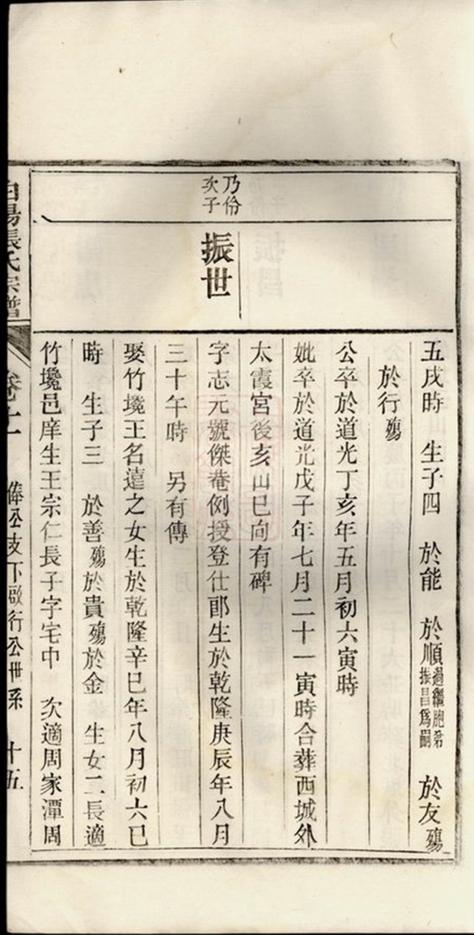 五戌時　生子四　於能　於順過繼胞弟振昌爲嗣　於友殤
於行殤
公卒於道光丁亥年五月初六寅時
妣卒於道光戊子年七月二十一寅時合葬西城外
太霞宮後亥山巳向有碑
乃份次子
振世
字志元號傑菴例授登仕郎生於乾隆庚辰年八月
三十午時　另有傳
娶竹㘔王名遠之女生於乾隆辛巳年八月初六巳
時　生子三　於善殤於貴殤於金　生女二長適
竹㘔邑庠生王宗仁長子字宅中　次適周家潭周
白湯張氏宗譜　卷十一　俸公支下啟行公世系　十五